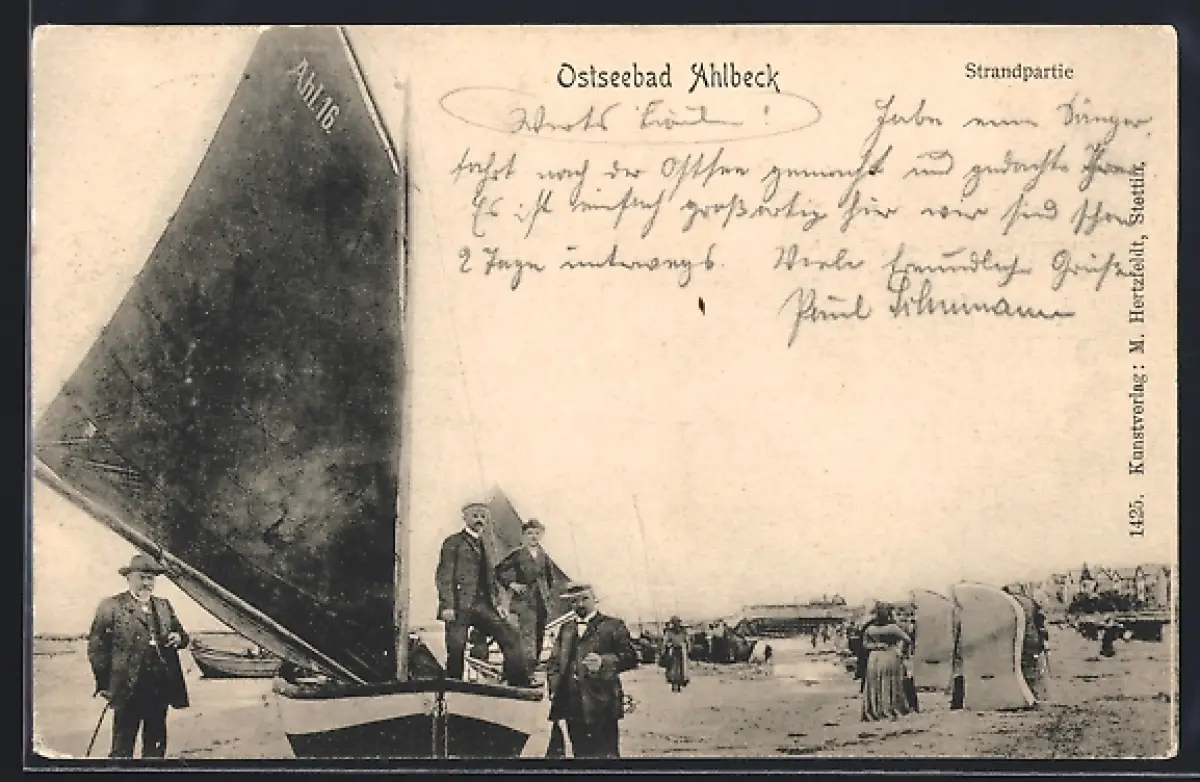 Ostseebad Ahlbeck
Strandpartie
Ahl.16.
Werte !
Habe eine Sänger
fahrt nach der Ostsee gemacht und gedachte Ihrer
Es ist einfach großartig hier wir sind schon
2 Tage unterwegs. Viele freundliche Grüße
Paul
1425. Kunstverlag: M. Hertzfeldt, Stettin.